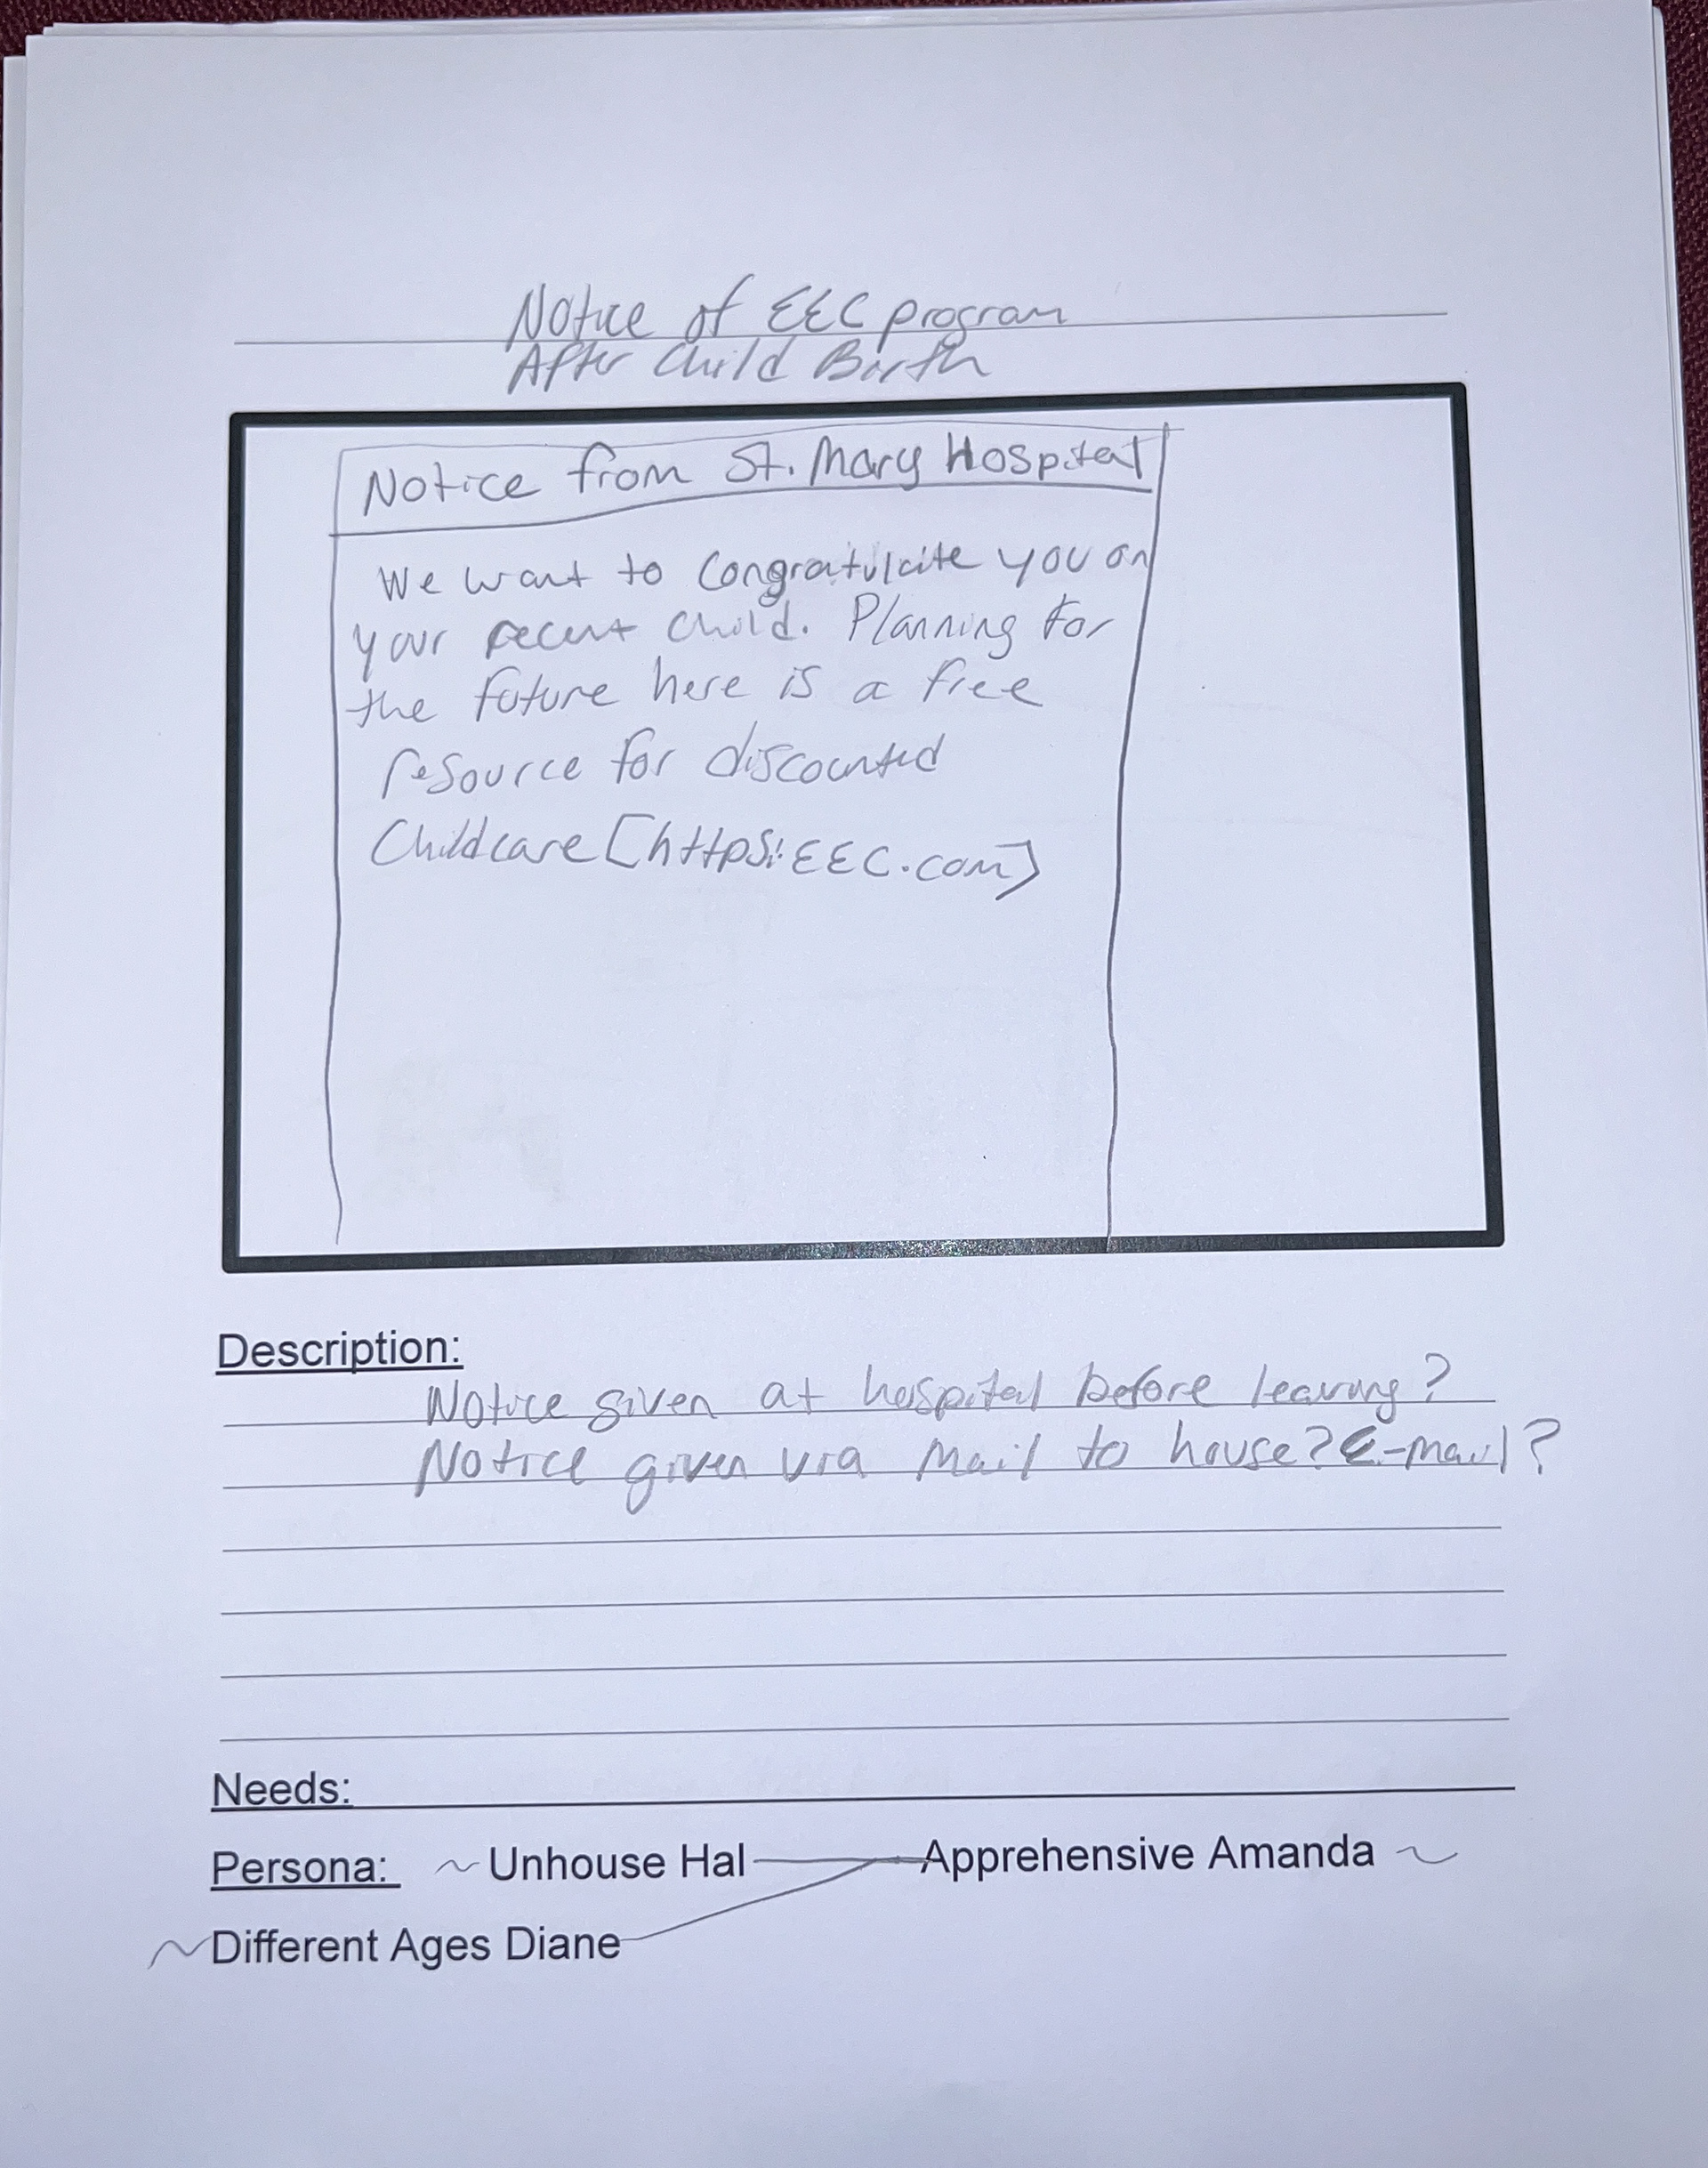 Notice of EEC program
After Child Birth
Notice from St. Mary Hospital
We want to Congratulate you on
your recent child. Planning for
the future here is a free
resource for discounted
Childcare [https:EEC.com]
Description:
Notice given at hospital before leaving?
Notice given via Mail to house? E-mail?
Needs:
Persona: ~ Unhouse Hal Apprehensive Amanda ~
~ Different Ages Diane